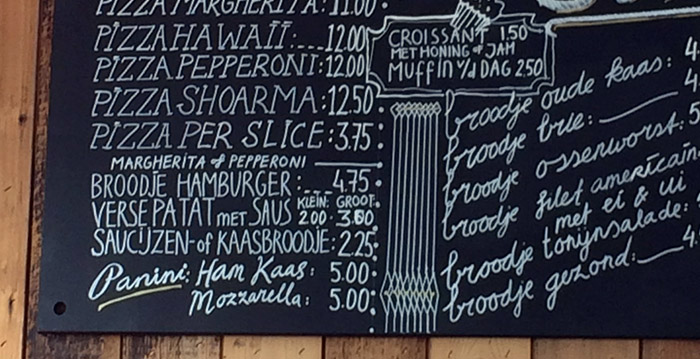 PIZZA MARGHERITA: 11.00
PIZZA HAWAÏÏ: 12.00
PIZZA PEPPERONI: 12.00
PIZZA SHOARMA: 12.50
PIZZA PER SLICE: 3.75
MARGHERITA of PEPPERONI
BROODJE HAMBURGER: 4.75
VERSE PATAT met SAUS KLEIN: 2.00 GROOT: 3.60
SAUCIJZEN- of KAASBROODJE: 2.25
Panini: Ham Kaas: 5.00
Mozzarella: 5.00
CROISSANT 1.50
MET HONING of JAM
MUFFIN v/d DAG 2.50
broodje oude kaas: 4
broodje brie: 4
broodje ossenworst: 5
broodje filet americain
met ei & ui
broodje tonijnsalade:
broodje gezond: 4